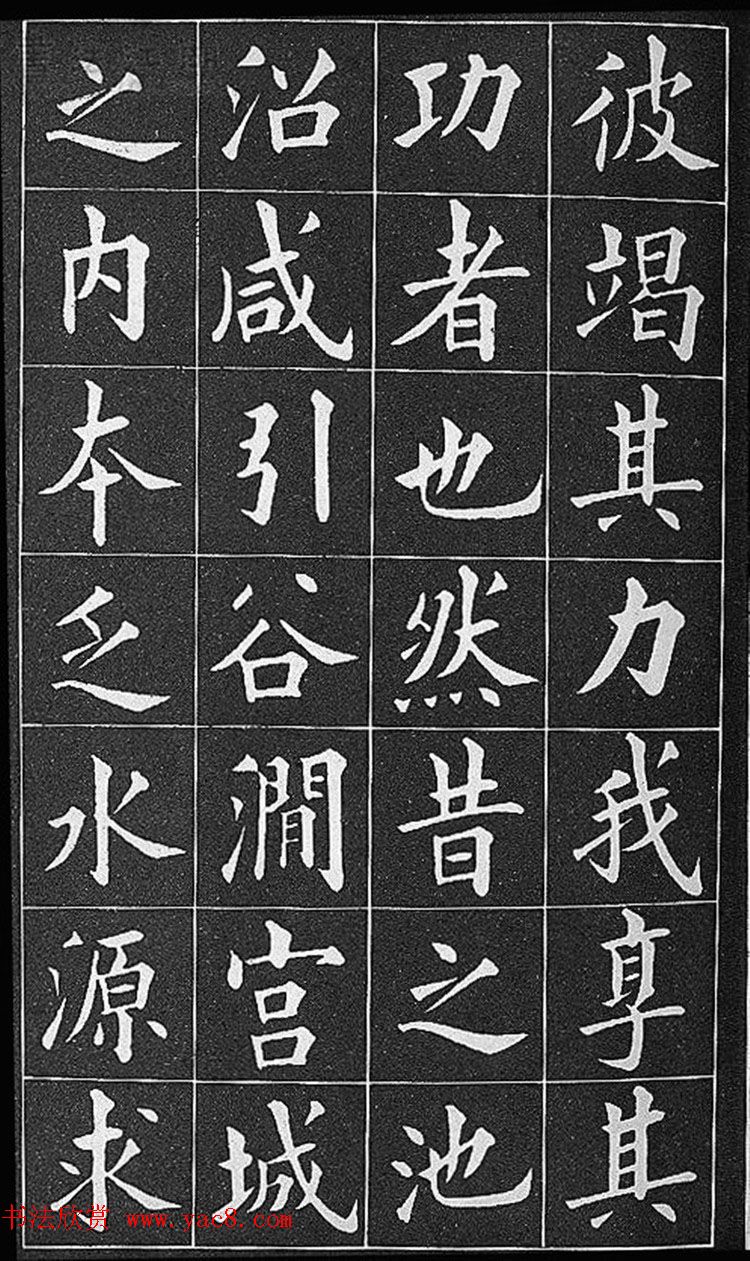 彼竭其力我享其
功者也然昔之池
沼咸引谷澗宫城
之内本乏水源求
书法欣赏 www.yac8.com